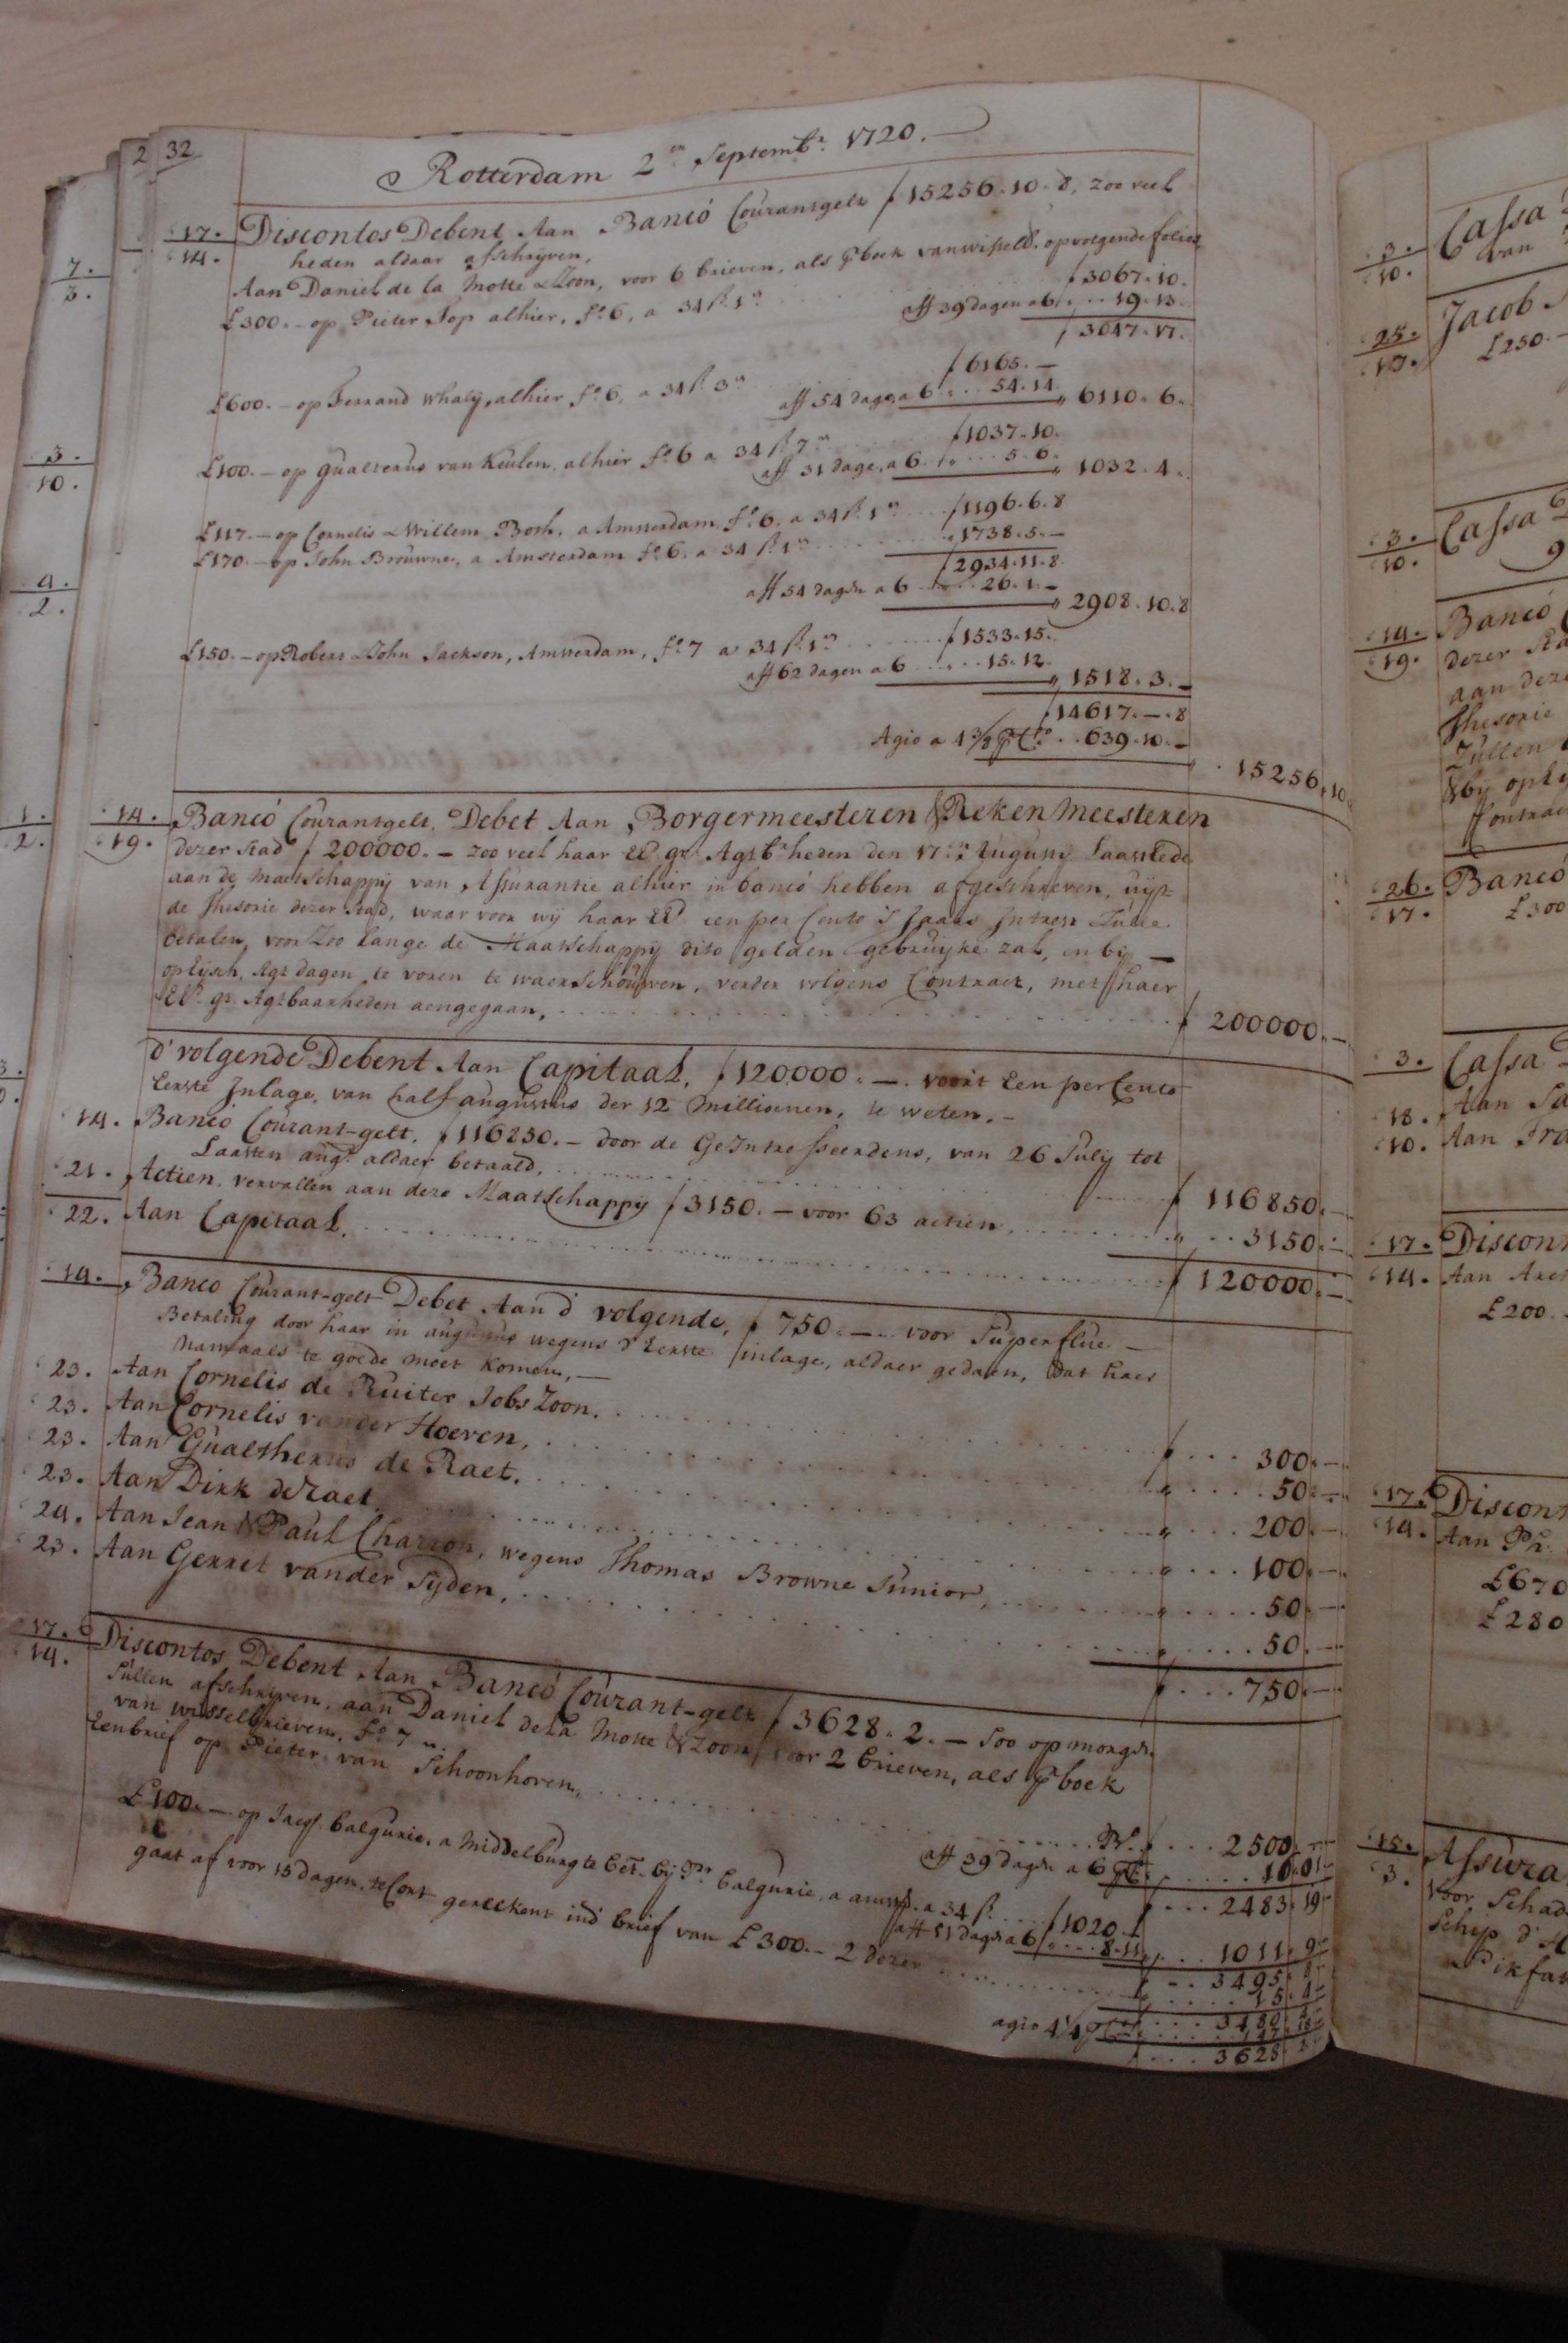 2 32
Rotterdam 2en Septembr. 1720.
17. Discontos Debent Aan Banco Courantgelt ƒ 15256.10.8, zoo veel
14. heden aldaar afschryven,
Aan Daniel de la Motte & Zoon, voor 6 brieven, als pr boek van wisselb. op volgende folios
£300.– op Pieter Sop alhier, fo. 6, a 34 ß. 1 ƒ3067.10.
aff 39 dagen a 6 19.13.
ƒ 3047.17.
£600.– op Ferrand Whaly, alhier fo. 6, a 34 ß 3 ƒ6165.–
aff 54 dagen a 6 54.14 6110.6.
£100.– op Gualterus van Keulen, alhier fo. 6 a 34 ß 7 ƒ1037.10.
aff 31 dage, a 6 5.6. 1032.4.
£117.– op Cornelis & Willem Bosh, a Amsterdam fo. 6, a 34 ß. 1 ƒ1196.6.8
£170.– op John Brouwne, a Amsterdam fo. 6, a 34 ß. 1 1738.5.–
ƒ2934.11.8
aff 54 dagen a 6 26.1.– 2908.10.8
£150.– op Robert & John Jackson, Amsterdam, fo. 7 a 34 ß. 1 ƒ1533.15.
aff 62 dagen a 6 15.12.
1518.3.–
ƒ14617.–.8
Agio a 4 3/8 pr Cto. 639.10.–
15256.10
14. Banco Courantgelt, Debet Aan Borgermeesteren & Rekenmeesteren
19. dezer stad ƒ 200000.– zoo veel haar Ed. gr. Agtb. heden den 17en Augusty Laastlede
aan de Maetschappij van Assurantie alhier in banco hebben afgeschreven, uijt
de Thesorie dezer stad, waar voor wij haar Ed. een per Cento 's Jaars Intrest Zulle
betalen, voor Zoo lange de Maatschappij dito gelden gebruijke zal, en bij –
opEijsch, Agt dagen te voren te waerschouwen, verder volgens Contract, met haer
Ed. gr. Agtbaarheden aengegaan, ƒ 200000.–
d'volgende Debent Aan Capitaal, ƒ120000.–. voor't Een per Cento
Eerste Inlage, van half augustus der 12 Millioenen, te weten.–
14. Banco Courant-gelt, ƒ116850.– door de Geintresseerdens, van 26 July tot
Laasten augo. aldaer betaald, ƒ 116850.–
21. Actien, vervallen aan deze Maatschappij ƒ3150.– voor 63 actien, 3150.–
22. Aan Capitaal, ƒ 120000.–
14. Banco Courant-gelt Debet Aan d'volgende, ƒ 750.– voor Superflue –
Betaling door haar in augustus wegens d'Eerste inlage, aldaer gedaen, dat haer
Namaals te goede moet komen,–
23. Aan Cornelis de Ruiter Jobs Zoon, ƒ 300.–
23. Aan Cornelis vander Hoeven, 50.–
23. Aan Gualtherus de Raet, 200.–
23. Aan Dirk de Raet 100.–
24. Aan Jean & Paul Charron, wegens Thomas Browne Junior, 50.–
23. Aan Gerret vander Sijden, 50.–
ƒ 750.–
17. Discontos Debent Aan Banco Courant-gelt ƒ 3628.2.– Soo op morgen
14. Sullen afschryven, aan Daniel de la Motte & Zoon voor 2 brieven, als pr boek
van wisselbrieven, fo. 7
Eenbrief op Pieter van Schoonhoven, ƒ 2500.–
aff 39 dagen a 6 16.01
2483.19
£100.– op Jacq. Calgurie, a Middelburg te bet. bij Calgurie, a amst. a 34 ß. ƒ1020.–
aff 51 dagen a 6 8.11 1011.9
3495.8
gaat af voor 15 dagen, te Cort gereekent ind brief van £300.– 2 dezer 15.4
3480.4
agio 4 1/4 147.18
3628.2
7.
3.
3.
10.
4.
2.
1.
2.
3. Cassa
10. van
25. Jacob
17. £250.–
3. Cassa
10.
14. Banco
19. dezer
aan deze
Thesorie
Zullen
& bij
Contract
26. Banco
17. £300
3. Cassa
18. Aan
10. Aan Fra
17. Discont
14. Aan
£200.
17. Discont
14. Aan
£670
£280
15. Assura
3. voor Schad
Schip